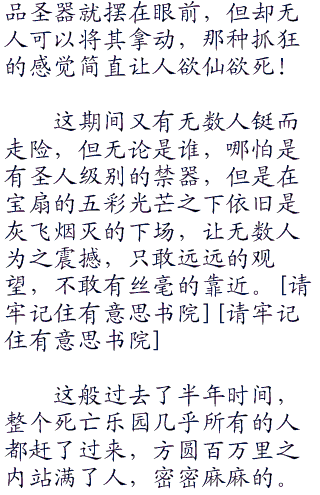 品圣器就摆在眼前，但却无
人可以将其拿动，那种抓狂
的感觉简直让人欲仙欲死！
这期间又有无数人铤而
走险，但无论是谁，哪怕是
有圣人级别的禁器，但是在
宝扇的五彩光芒之下依旧是
灰飞烟灭的下场，让无数人
为之震撼，只敢远远的观
望，不敢有丝毫的靠近。[请
牢记住有意思书院][请牢记
住有意思书院]
这般过去了半年时间，
整个死亡乐园几乎所有的人
都赶了过来，方圆百万里之
内站满了人，密密麻麻的。